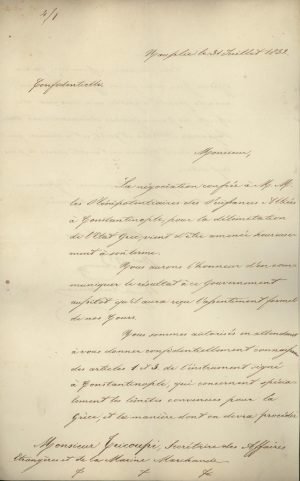 4/1
Nauplie le 31 Juillet 1832.
Confidentielle.
Monsieur,
La négociation confiée à M. M.
les Plénipotentiaires des Puissances Alliées
à Constantinople, pour la délimitation
de l'Etat Grec, vient d'être amenée heureuse-
ment à son terme.
Nous aurons l'honneur d'en com-
muniquer le résultat à ce Gouvernement
aussitôt qu'il aura reçu l'assentiment formel
de nos Cours.
Nous sommes autorisés en attendant
à vous donner confidentiellement connaissance
des articles 1 et 3 de l'instrument signé
à Constantinople, qui concernent spéciale-
lement les limites convenues pour la
Grèce, et la manière dont on devra procéder
Monsieur Tricoupi, Secrétaire des Affaires
Etrangères et de la Marine Marchande